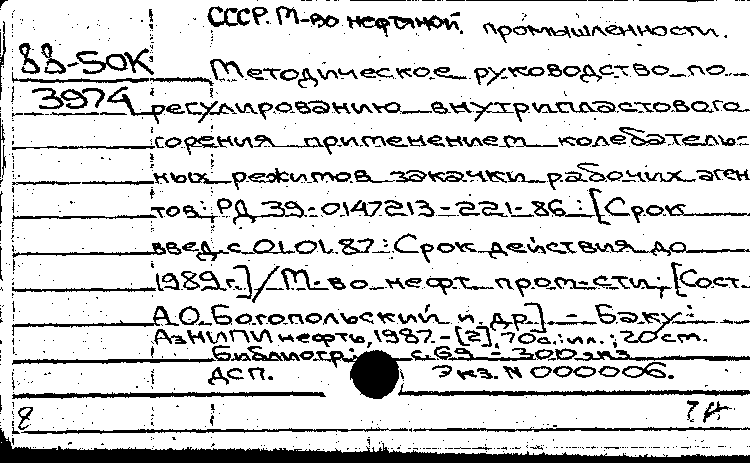 СССР. М-во нефтяной промышленности.
88-50К
Методическое руководство по
3974
регулированию внутрипластового
горения применением колебатель-
ных режимов закачки рабочих аген
тов: РД 39-0147213-221-86: [Срок
введ. с 01.01.87: Срок действия до
1989 г.] / М-во нефт. пром-сти; [Сост.
А.О. Богопольский и др.]. - Баку:
АзНИПИнефть, 1987. - [2], 70с.: ил.; 20см.
Библиогр.: с. 69 - 300 экз
ДСП. Экз. N 000006.
8